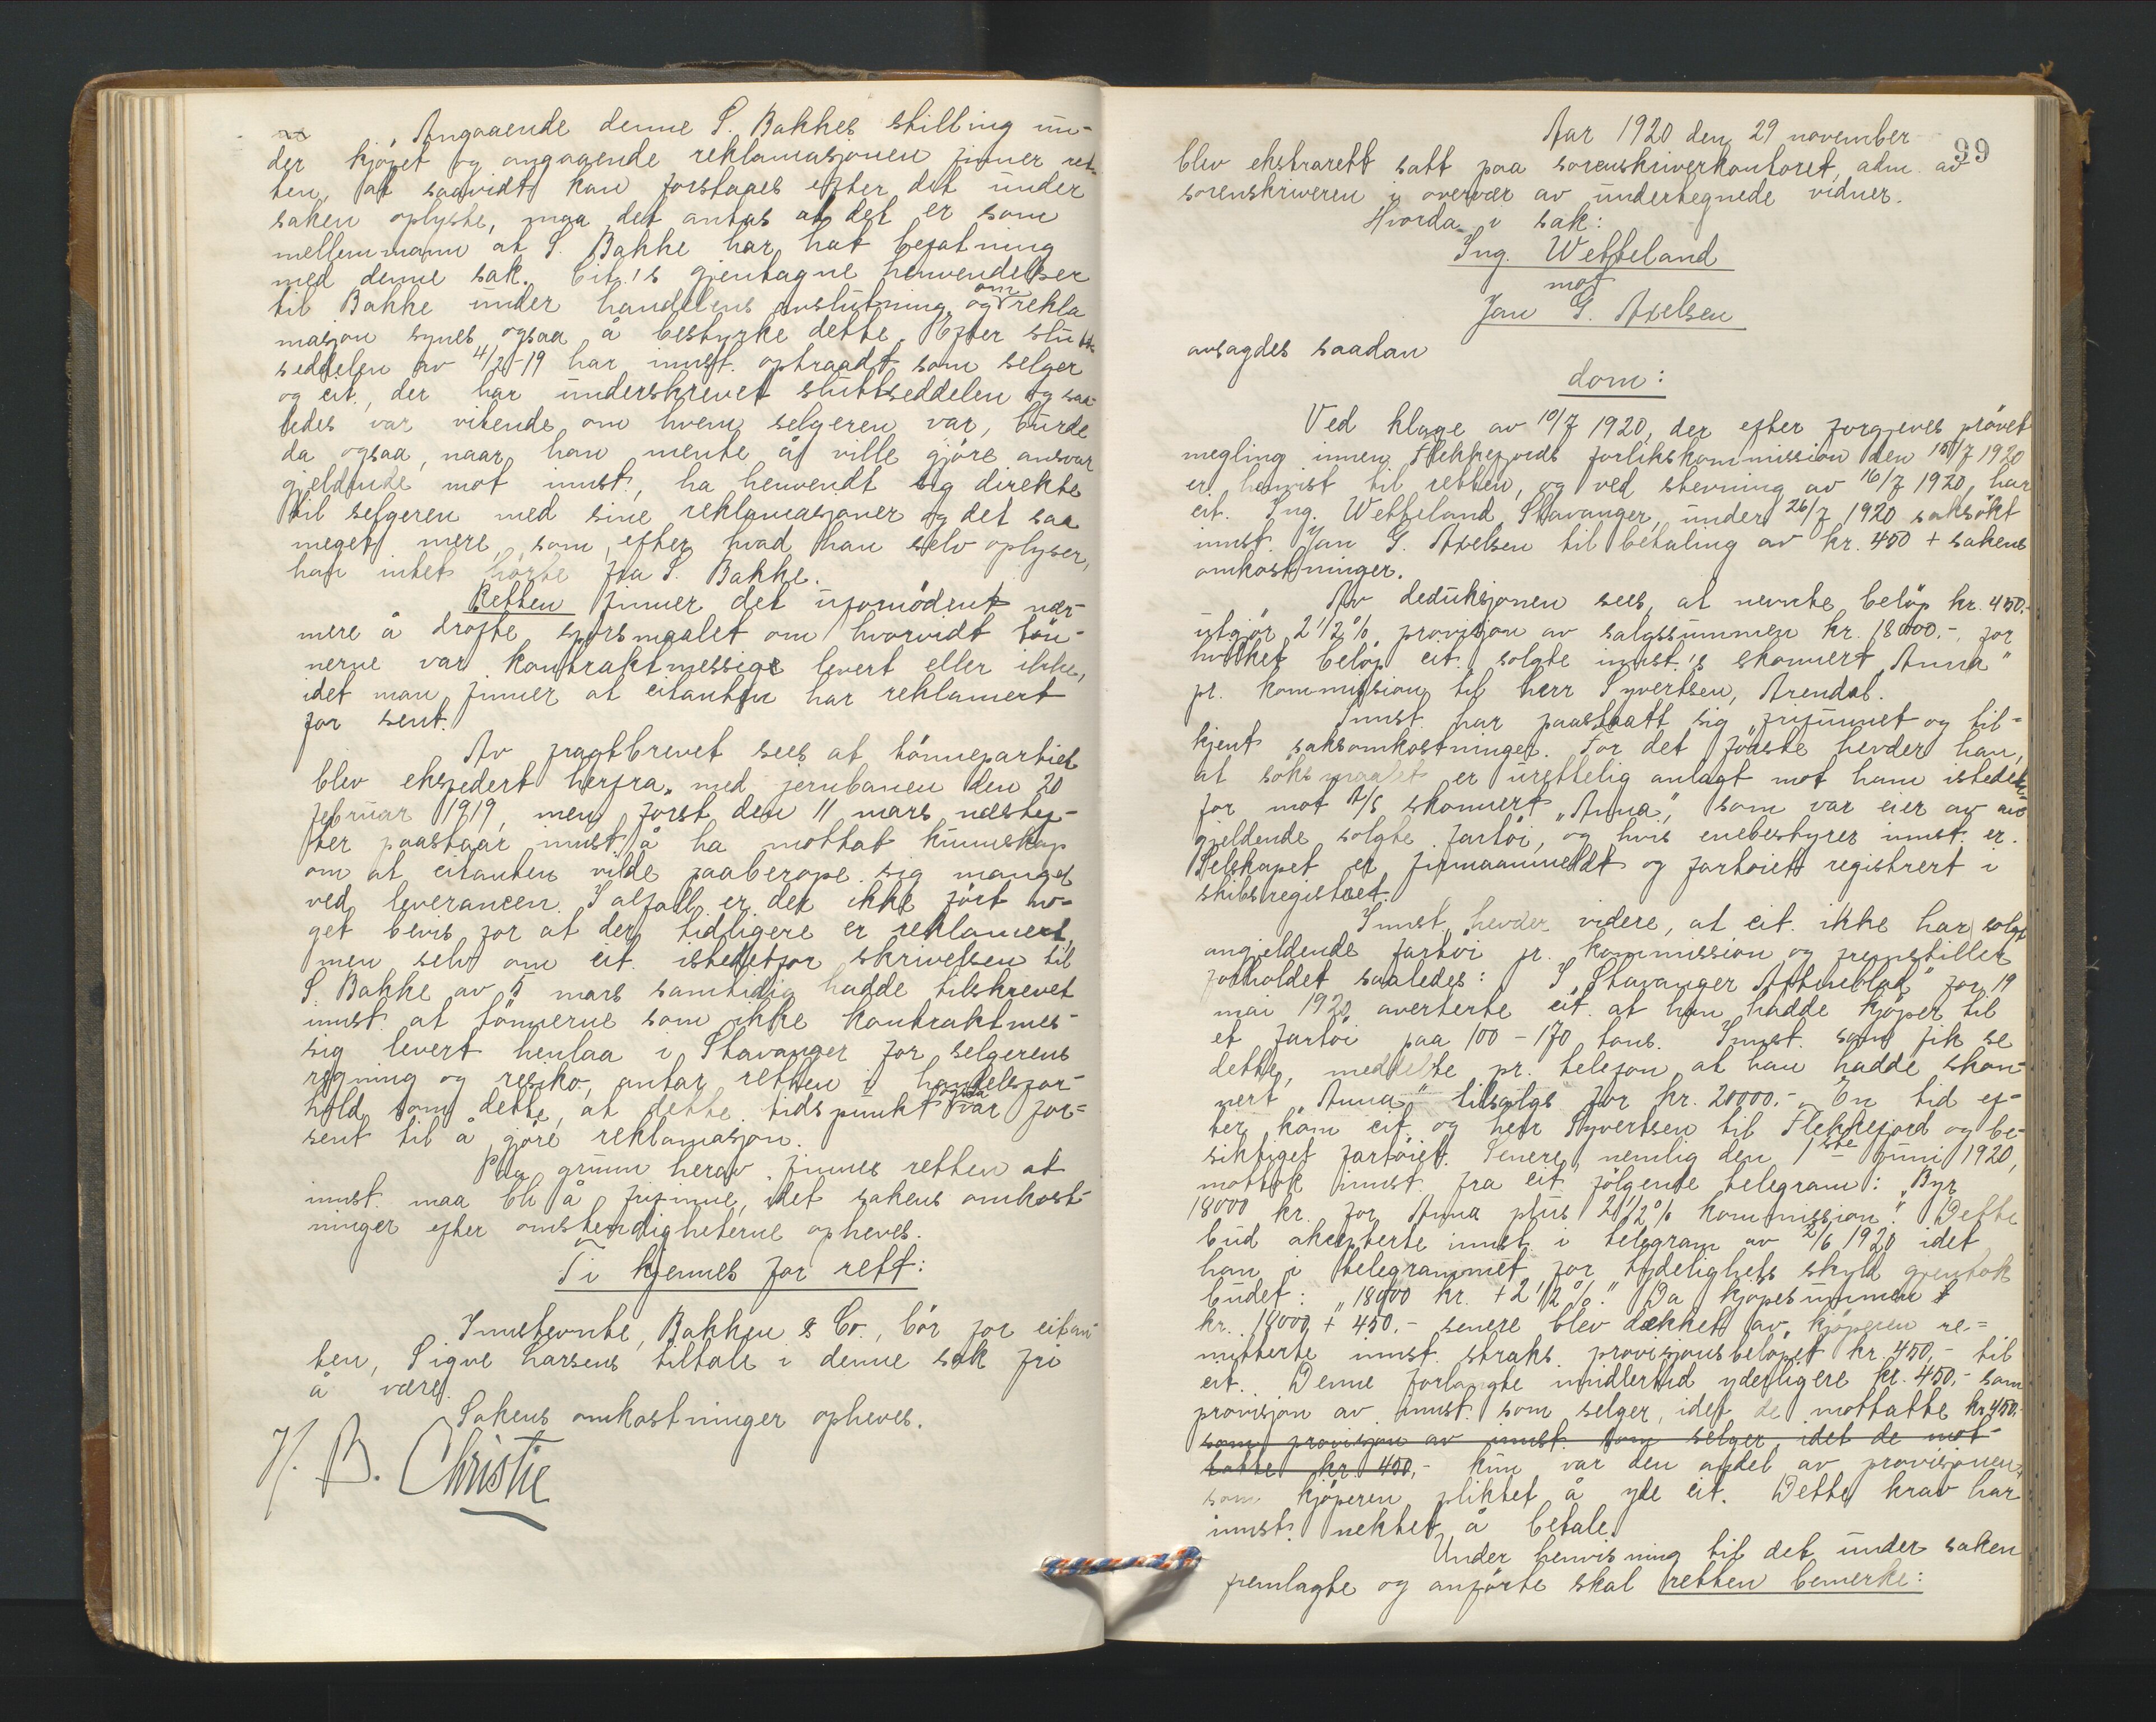 Angaaende denne S. Bakkes stilling un-
der kjöpet og angaaende reklamasjonen finner ret-
ten, at saavidt kan forstaaes efter det under
saken oplyste, maa det antas at det er som
mellemmann at S. Bakke har hat befatning
med denne sak. Cit.'s gjentagne henvendelser
til Bakke under handelens avslutning og om rekla
masjon synes ogsaa å bestyrke dette. Efter slutt-
seddelen av 4/2-19 har innst. optraadt som selger
og cit., der har underskrevet sluttseddelen og saa-
ledes var vitende om hvem selgeren var, burde
da ogsaa, naar han mente å ville gjöre ansvar
gjeldende mot innst., ha henvendt sig direkte
til selgeren med sine reklamasjoner og det saa
meget mere, som, efter hvad han selv oplyser,
han intet hörte fra S. Bakke.
Retten finner det ufornödent nær-
mere å dröfte spörsmaalet om hvorvidt tön-
nerne var kontraktmessige levert eller ikke,
idet man finner at citanten har reklamert
for sent.
Av fragtbrevet sees at tönnepartiet
blev ekspedert herfra med jernbanen den 20
februar 1919, men först den 11 mars næstef-
ter paastaar innst. å ha mottat kunnskap
om at citanten vilde paaberope sig mangel
ved leverancen. I alfall er der ikke fört no-
get bevis for at der tidligere er reklamert,
men selv om cit. istedetfor skrivelsen til
S. Bakke av 5 mars samtidig hadde tilskrevet
innst. at tönnerne som ikke kontraktmes-
sig levert henlaa i Stavanger for selgerens
regning og resiko, antar retten i handelsfor-
hold som dette, at dette tidspunkt var for-
sent til å gjöre reklamasjon.
Paa grunn herav finnes retten at
innst. maa bli å frifinne, idet sakens omkost-
ninger efter omstendigheterne opheves.
Ti kjennes for rett:
Innstevnte, Bakken & Co., bör for citan-
ten, Sigve Larsens tiltale i denne sak fri
å være.
Sakens omkostninger opheves.
H. B. Christie
99
Aar 1920 den 29 november
blev ekstrarett satt paa sorenskriverkontoret, adm. av
sorenskriveren i overvær av undertegnede vidner.
Hvorda i sak:
Ing. Wetteland
mot
Jan G. Axelsen
avsagdes saadan
dom:
Ved klage av 10/7 1920, der efter forgjeves prövet
megling innen Flekkefjords forlikskommission den 15/7 1920
er henvist til retten, og ved stevning av 16/7 1920, har
cit. Ing. Wetteland Stavanger, under 26/7 1920 saksökt
innst. Jan G. Axelsen til betaling av kr. 450 + sakens
omkostninger.
Av deduksjonen sees, at nevnte belöp kr. 450.-
utgjör 2 1/2 % provisjon av salgssummen kr. 18000.-, for
hvilket belöp cit. solgte innst.'s skonnert "Anna"
pr. kommission til herr Syvertsen, Arendal.
Innst. har paastaatt sig frifunnet og til-
kjent saksomkostninger. For det förste hevder han,
at söksmaalet er urettelig anlagt mot ham istedet-
for mot A/S skonnert "Anna", som var eier av an-
gjeldende solgte fartöi, og hvis enebestyrer innst. er.
Selskapet er firmaanmeldt og fartöiet registrert i
skibsregistret.
Innst. hevder videre, at cit. ikke har solgt
angjeldende fartöi pr. kommission og fremstiller
forholdet saaledes: I "Stavanger Aftenblad" for 19
mai 1920 averterte cit. at han hadde kjöper til
et fartöi paa 100-170 tons. Innst. som fik se
dette, meddelte pr. telefon at han hadde skon-
nert "Anna" tilsalgs for kr. 20000.- En tid ef-
ter kom cit. og herr Syvertsen til Flekkefjord og be-
siktiget fartöiet. Senere, nemlig den 1ste juni 1920,
mottok innst. fra cit. fölgende telegram: "Byr
18000 kr. for Anna plus 2 1/2 % kommission". Dette
bud aksepterte innst. i telegram av 2/6 1920 idet
han i telegrammet for tydelighets skyld gjentok
budet: "18000 kr. + 2 1/2 %." Da kjöpesummen
kr. 18000 + 450.- senere blev dækket av kjöperen re-
mitterte innst. straks provisjonsbelöpet kr. 450,- til
cit. Denne forlangte imidlertid yderligere kr. 450,- som
provisjon av innst. som selger, idet de mottatte kr. 450.-
som provisjon av innst. som selger, idet de mot-
tatte kr. 450,- kun var den andel av provisjonen,
som kjöperen pliktet å yde cit. Dette krav har
innst. nektet å betale.
Under henvisning til det under saken
fremlagte og anförte skal retten bemerke: